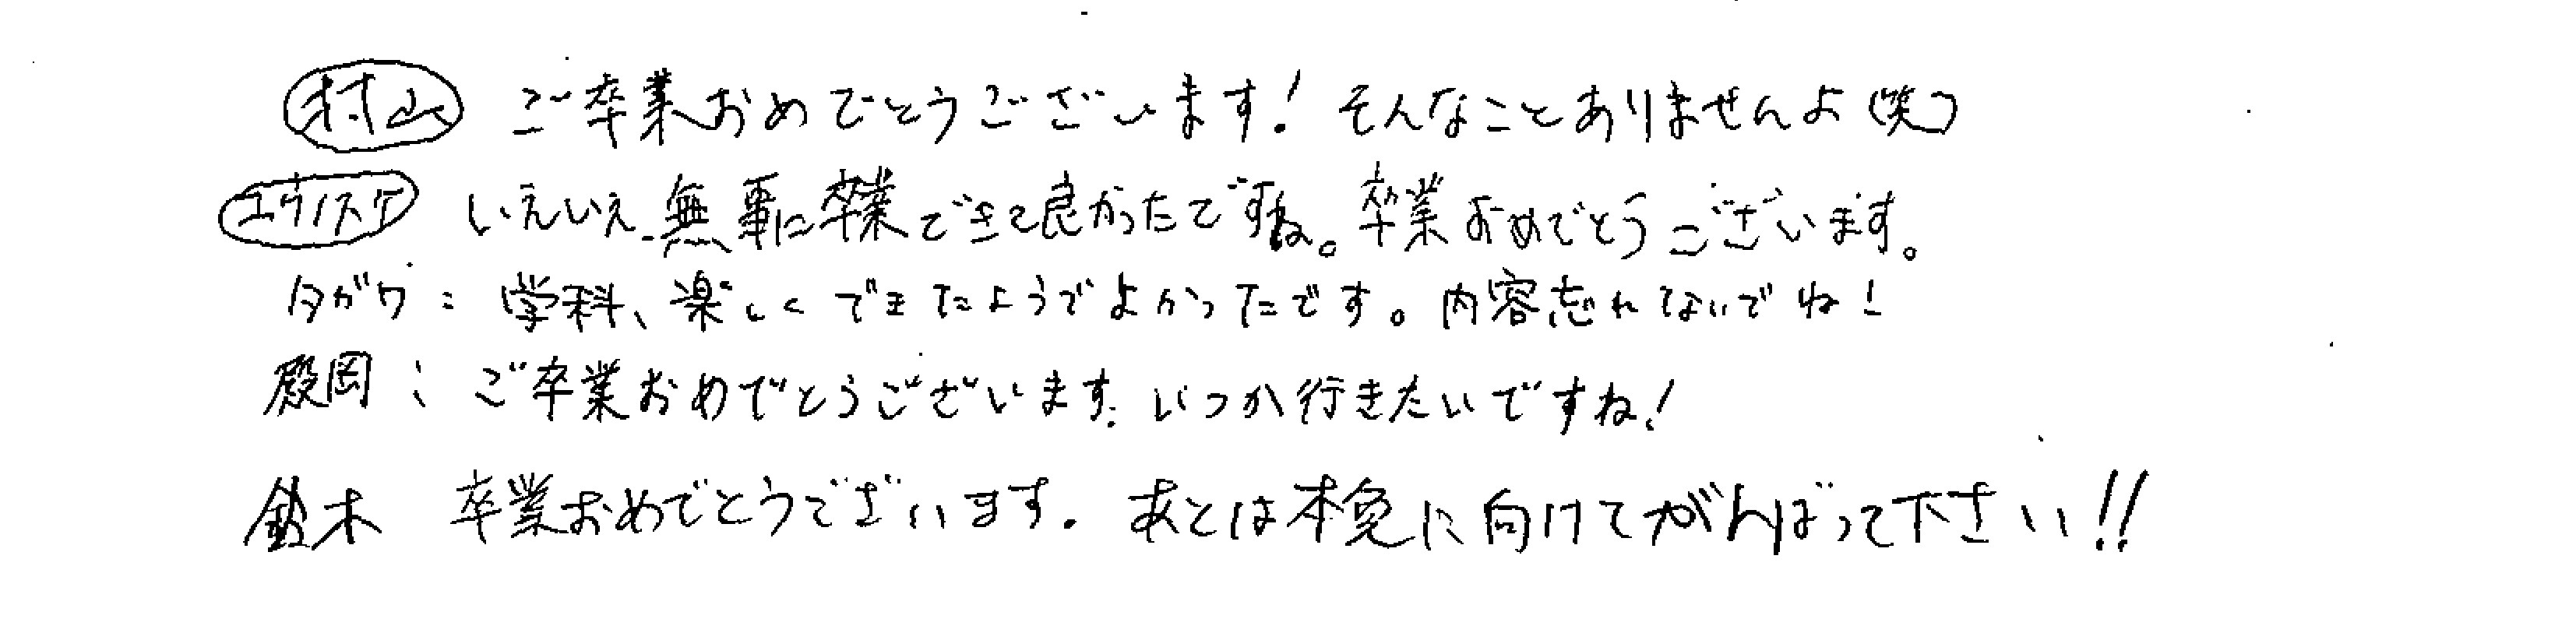 村山 ご卒業おめでとうございます！そんなことありませんよ(笑)
ユウノスケ いえいえ、無事に卒業できて良かったですね。卒業おめでとうございます。
タガワ：学科、楽しくできたようでよかったです。内容忘れないでね！
殿岡：ご卒業おめでとうございます。いつか行きたいですね！
鈴木 卒業おめでとうございます。あとは本免に向けてがんばって下さい!!